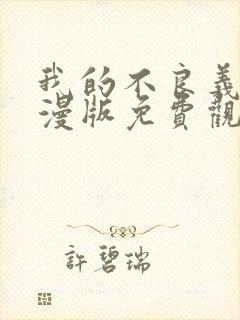 我的不良義
漫版免費觀
許碧瑞